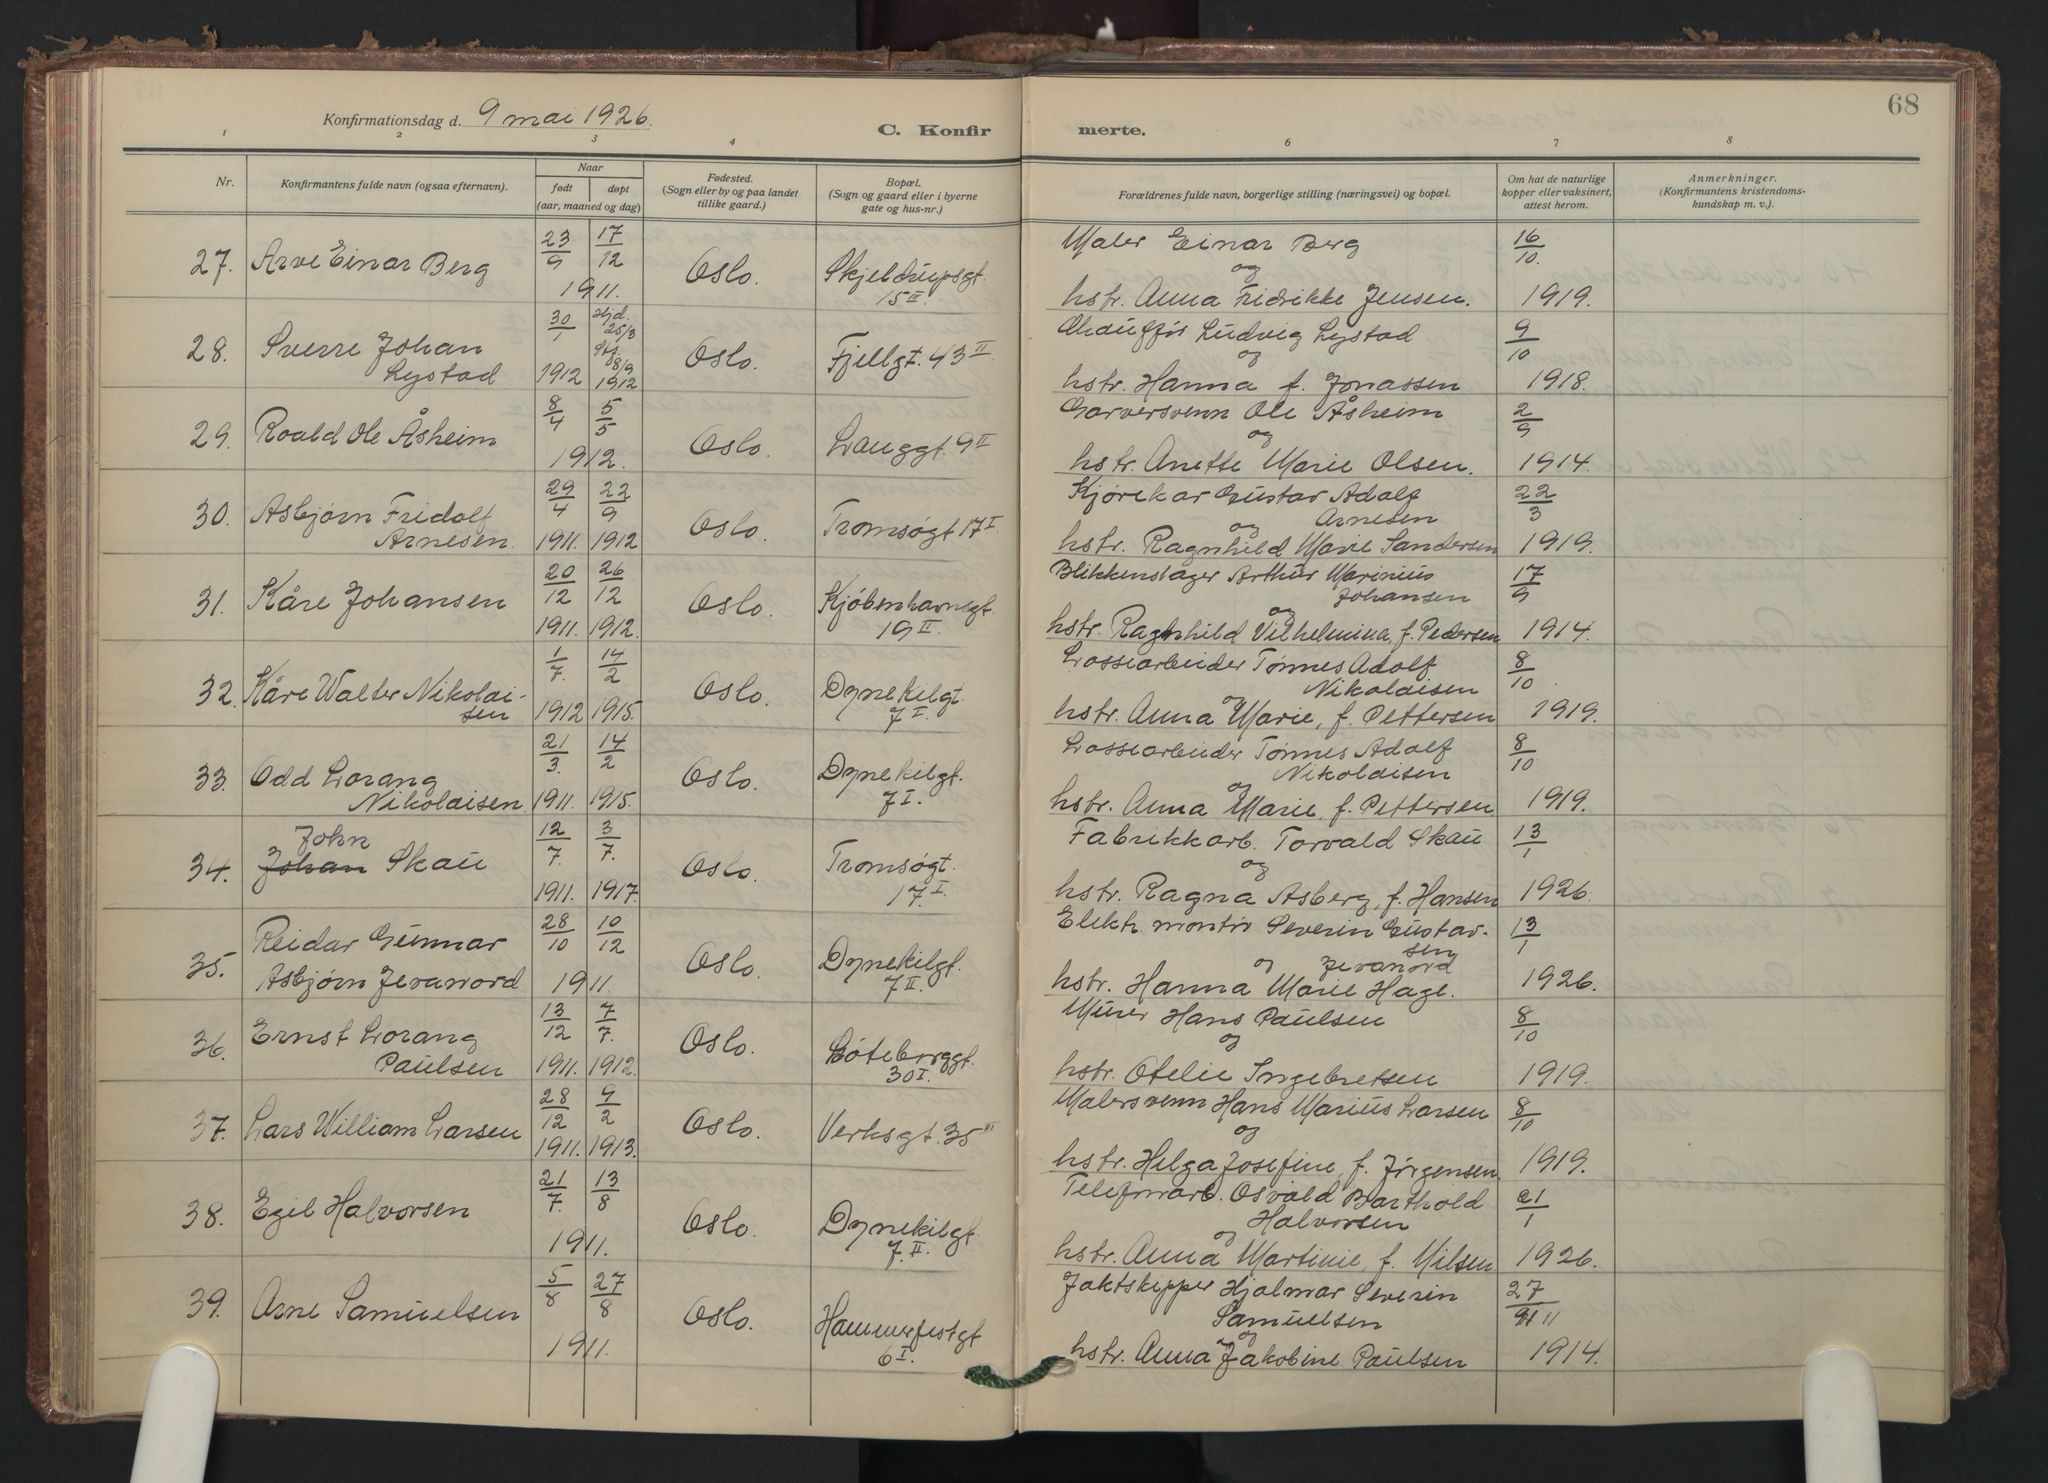 68
Konfirmationsdag d. 9 mai 1926.
C. Konfirmerte.
1 2 3 4 6 7 8
Nr. | Konfirmantens fulde navn (ogsaa efternavn). | Naar født døpt (aar, maaned og dag) | Fødested. (Sogn eller by og paa landet tillike gaard.) | Bopæl. (Sogn og gaard eller i byerne gate og hus-nr.) | Forældrenes fulde navn, borgerlige stilling (næringsvei) og bopæl. | Om hat de naturlige kopper eller vaksinert, attest herom. | Anmerkninger. (Konfirmantens kristendomskundskap m. v.).
27. Arve Einar Berg | 23/9 17/12 1911. | Oslo. | Skjeldrupsgt. 15 III. | Maler Einar Berg og hstr. Anna Fredrikke Jensen. | 16/10. 1919.
28. Sverre Johan Lystad | 30/1 1912 Hjd. 25/3 Stf. 8/9 1912 | Oslo. | Fjellgt. 43 II | Chauffør Ludvig Lystad og hstr. Hanna f. Jonassen | 9/10 1918.
29. Roald Ole Åsheim | 8/4 5/5 1912. | Oslo. | Langgt. 9 II | Garversvenn Ole Åsheim og hstr. Anette Marie Olsen. | 2/9 1914.
30. Asbjørn Fridolf Arnesen. | 29/4 1911. 22/9 1912 | Oslo. | Tromsøgt 17 I. | Kjørekar Gustav Adolf Arnesen og hstr. Ragnhild Marie Sandersen | 22/3 1919.
31. Kåre Johansen | 20/12 1911. 26/12 1912. | Oslo. | Kjøbenhavnsgt. 19 II. | Blikkenslager Arthur Marinius Johansen og hstr. Ragnhild Vilhelmina, f. Pedersen | 17/9 1914.
32. Kåre Walter Nikolaisen | 1/7. 1912 14/2 1915. | Oslo. | Dynekilgt. 7 I. | Lossearbeider Tønnes Adolf Nikolaisen og hstr. Anna Marie, f. Pettersen | 8/10. 1919.
33. Odd Lorang Nikolaisen | 21/3. 1911. 14/2 1915. | Oslo. | Dynekilgt. 7 I. | Lossearbeider Tønnes Adolf Nikolaisen og hstr. Anna Marie, f. Pettersen | 8/10 1919.
34. John Johan Skau | 12/7. 1911. 3/7. 1917. | Oslo. | Tromsøgt. 17. I | Fabrikkarb. Torvald Skau og hstr. Ragna Asberg, f. Hansen | 13/1 1926.
35. Reidar Gunnar Asbjørn Jevanord | 28/10 10/12 1911. | Oslo. | Dynekilgt. 7 II. | Elektr. montør Severin Gustavsen Jevanord og hstr. Hanna Marie Hage. | 13/1 1926.
36. Ernst Lorang Paulsen | 13/12 1911. 7/7. 1912. | Oslo. | Gøteborggt. 30 I. | Murer Hans Paulsen og hstr. Otelie Ingebretsen | 8/10 1919.
37. Lars William Larsen | 28/12 1911. 9/2 1913. | Oslo. | Verksgt. 35 III | Malersvenn Hans Marius Larsen og hstr. Helga Josefine, f. Jørgensen. | 8/10 1919.
38. Egil Halvorsen | 21/7. 13/8 1911. | Oslo. | Dynekilgt. 7. II. | Telefonarb. Osvald Barthold Halvorsen og hstr. Anna Martinie, f. Nilsen | 21/1 1926.
39. Arne Samuelsen | 5/8 27/8 1911. | Oslo. | Hammerfestgt 6 I. | Jaktskipper Hjalmar Severin Samuelsen og hstr. Anna Jakobine Paulsen | 27/11 1914.